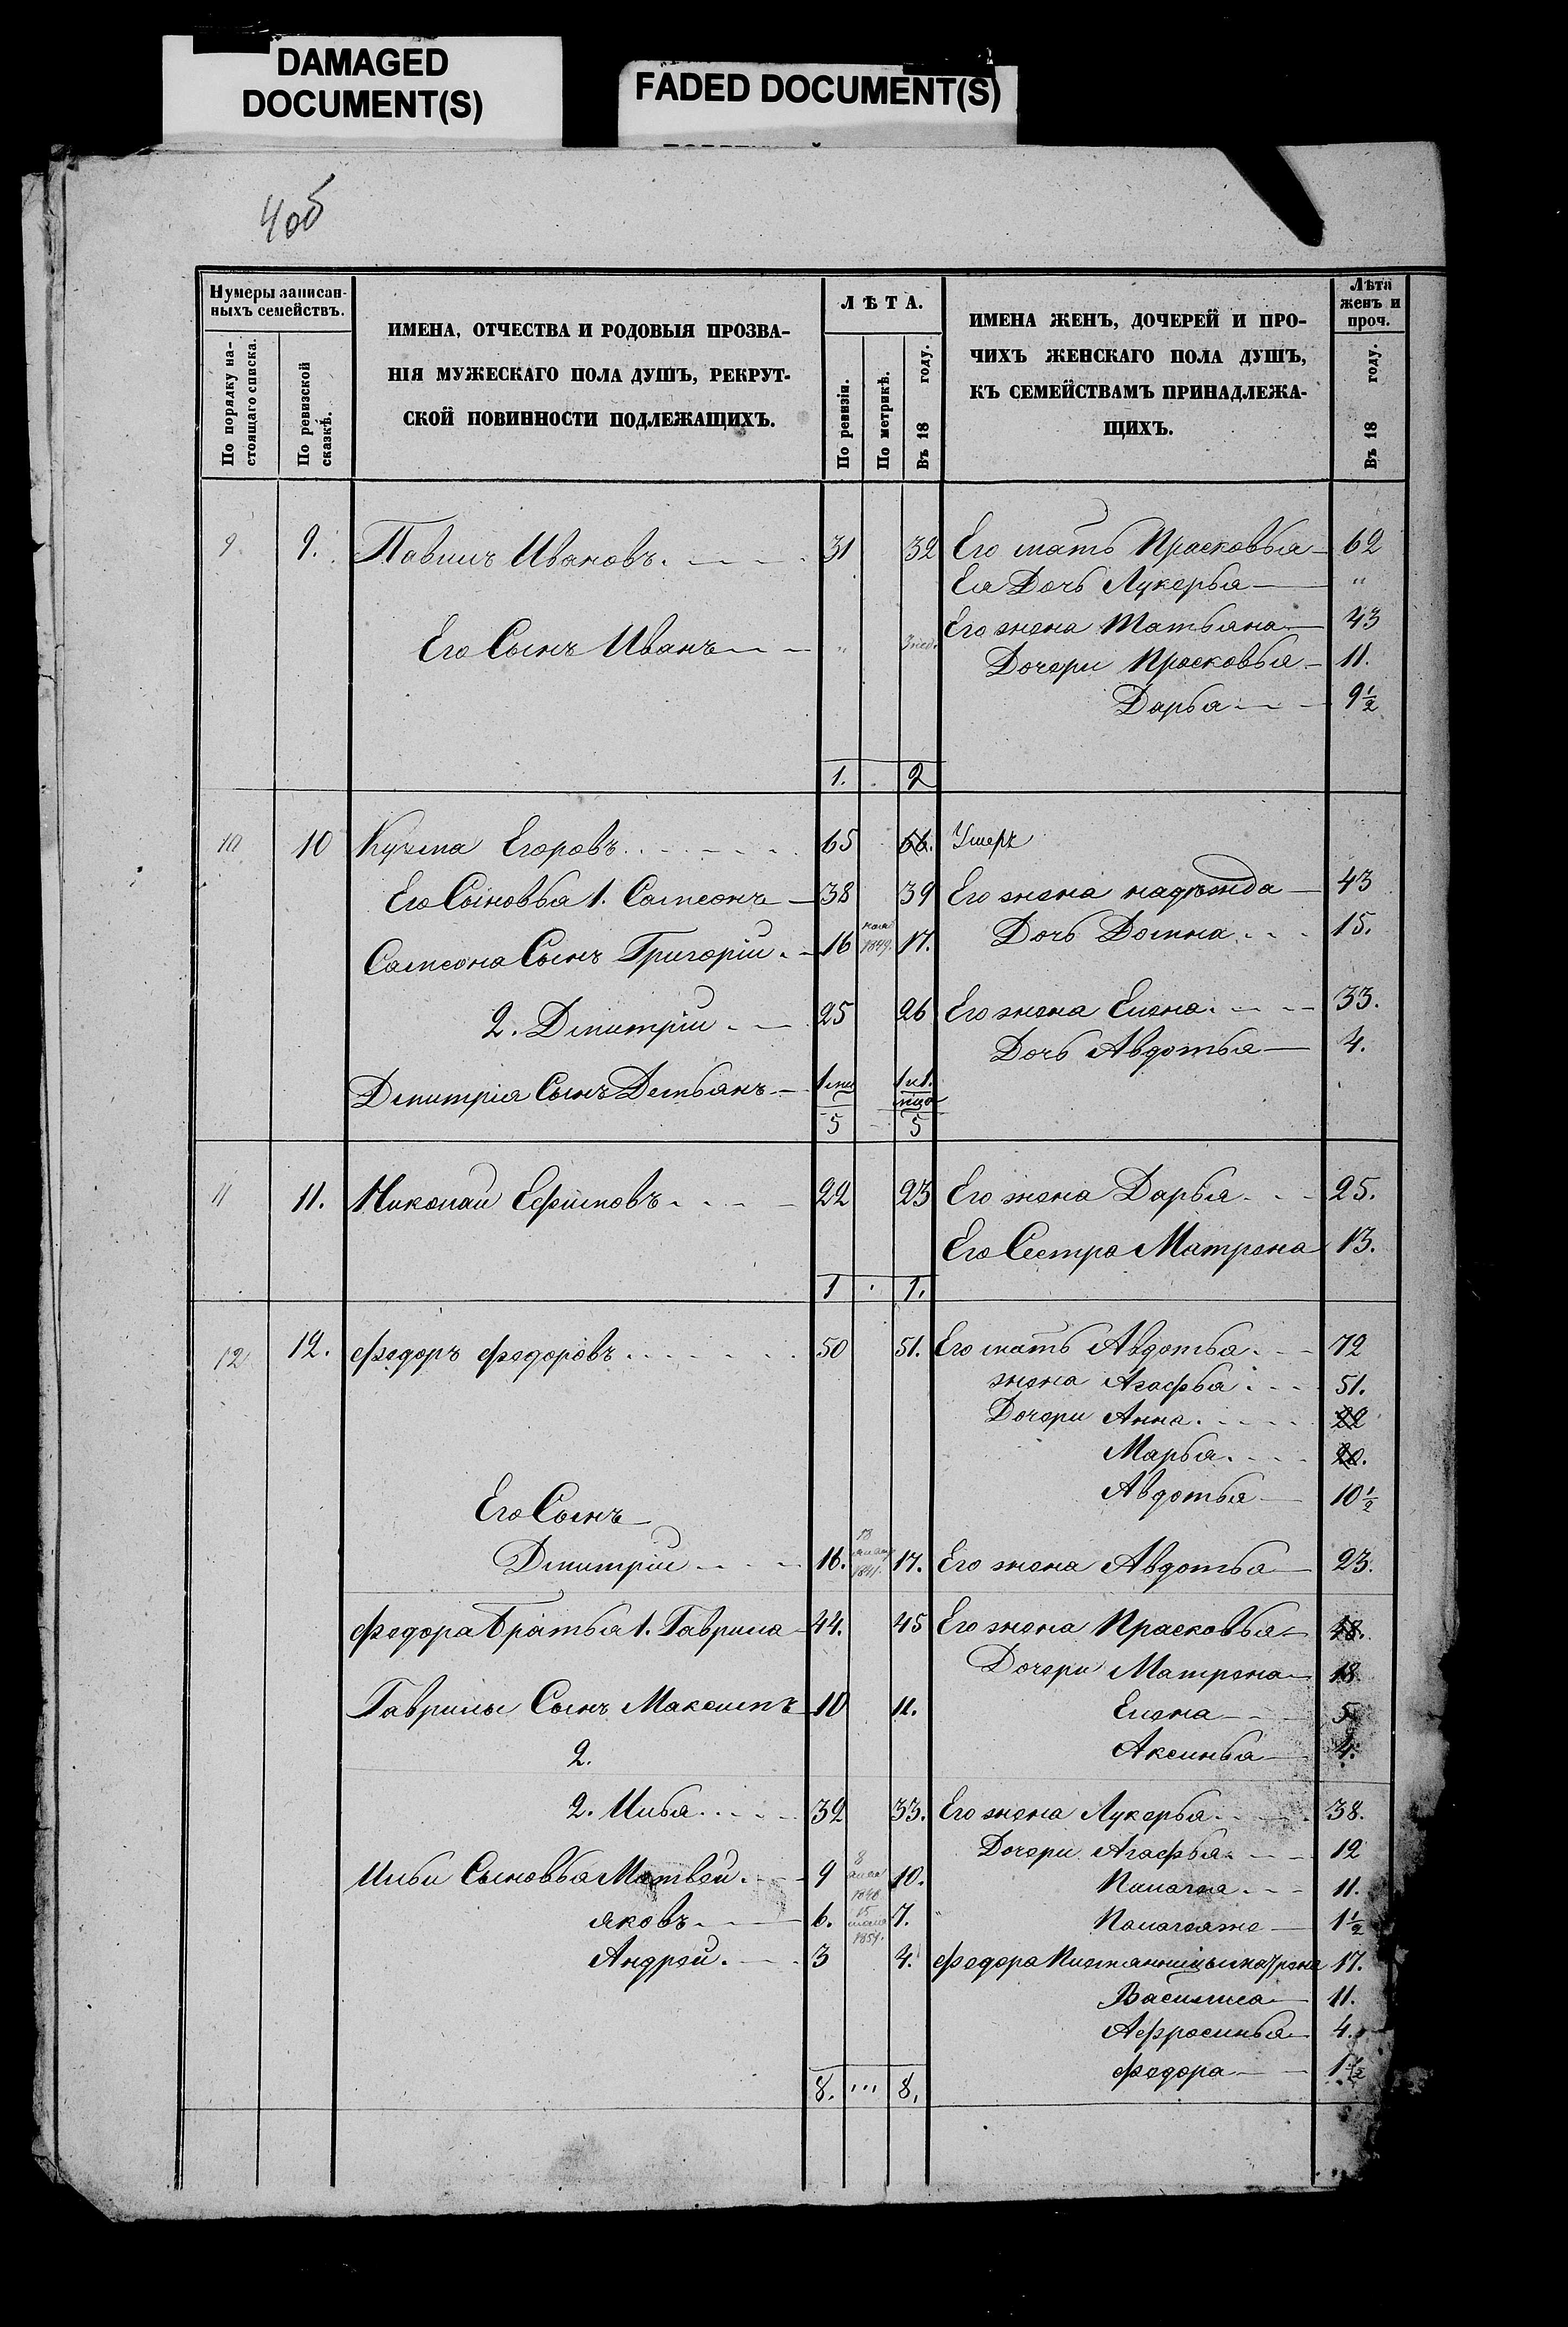 DAMAGED
DOCUMENT(S)
FADED DOCUMENT(S)
4об
Нумеры записан-
ныхъ семействъ.
По порядку на-
стоящаго списка.
По ревизской
сказкѣ.
ИМЕНА, ОТЧЕСТВА И РОДОВЫЯ ПРОЗВА-
НІЯ МУЖЕСКАГО ПОЛА ДУШЪ, РЕКРУТ-
СКОЙ ПОВИННОСТИ ПОДЛЕЖАЩИХЪ.
ЛѢТА.
По ревизіи.
По метрикѣ.
Въ 18 году.
ИМЕНА ЖЕНЪ, ДОЧЕРЕЙ И ПРО-
ЧИХЪ ЖЕНСКАГО ПОЛА ДУШЪ,
КЪ СЕМЕЙСТВАМЪ ПРИНАДЛЕЖА-
ЩИХЪ.
Лѣта
женъ и
проч.
Въ 18 году.
9 9. Павилъ Ивановъ. 31 32 Его мать Прасковья 62
Ея Дочь Лукерья "
Его жена Татьяна 43
Его Сынъ Иванъ "
Дочери Прасковья 11.
Дарья 9½
1. 2
10 10 Кузма Егоровъ 65 66. Умеръ
Его Сыновья 1. Самсонъ 38 39 Его жена надежда 43
Самсона Сынъ Григорій 16 1849. 17. Дочь Домна 15.
2. Дмитрій 25 26 Его жена Елена 33.
Дочь Авдотья 4.
Дмитрія Сынъ Демьянъ 1
5 5
11 11. Николай Ефимовъ 22 23 Его жена Дарья 25.
Его Сестра Матрена 13.
1 1.
12 12. Федоръ Федоровъ 50 51. Его мать Авдотья 72
жена Агафья 51.
Дочери Анна 22
Марья 20.
Авдотья 10½
Его Сынъ
Дмитрій 16. 1841. 17. Его жена Авдотья 23.
Федора Братья 1. Гаврила 44. 45 Его жена Прасковья 48.
Дочери Матрена 18
Гаврилы Сынъ Максимъ 10 11. Елена 5
2. Аксинья 4.
2. Илья 32 33. Его жена Лукерья 38.
Дочери Агафья 12
Ильи Сыновья Матвей 9 8 10. Палагея 11.
яковъ 6. 15 7. Палагеяже 1½
Андрей 3 4. Федора Племянницы матрена 17.
Василиса 11.
Афросинья 4.
Федора 1½
8. 8.